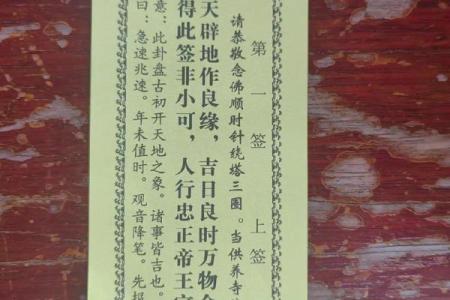 第一签 上签
请恭敬念佛顺时针绕塔三圈。当供养寺
天辟地作良缘，吉日良时万物
得此签非小可，人行忠正帝王
意：此卦盘古初开天地之象。诸事皆吉也。
曰：急速兆速。年未值时。观音降笔。先报